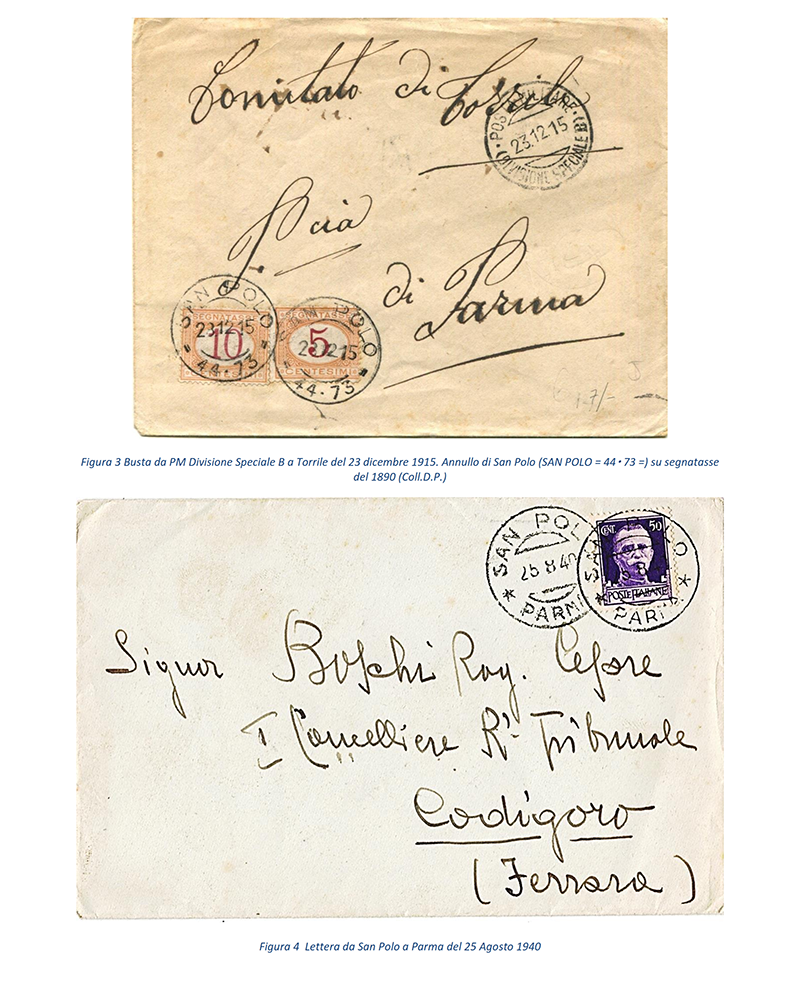 Comitato di Torrile
POSTA MILITARE
23.12.15
(DIVISIONE SPECIALE B)
Pcia
di Parma
SAN POLO
23.12.15
44·73
SEGNATASSE
10
SAN POLO
23.12.15
44·73
SEGNATASSE
5
CENTESIMI
Figura 3 Busta da PM Divisione Speciale B a Torrile del 23 dicembre 1915. Annullo di San Polo (SAN POLO = 44・73 =) su segnatasse
del 1890 (Coll.D.P.)
SAN POLO
25.8.40
* PARMA
CENT. 50
POSTE ITALIANE
PARMA *
Signor Boschi Rag. Cesare
I Cancelliere R. Tribunale
Codigoro
(Ferrara)
Figura 4 Lettera da San Polo a Parma del 25 Agosto 1940